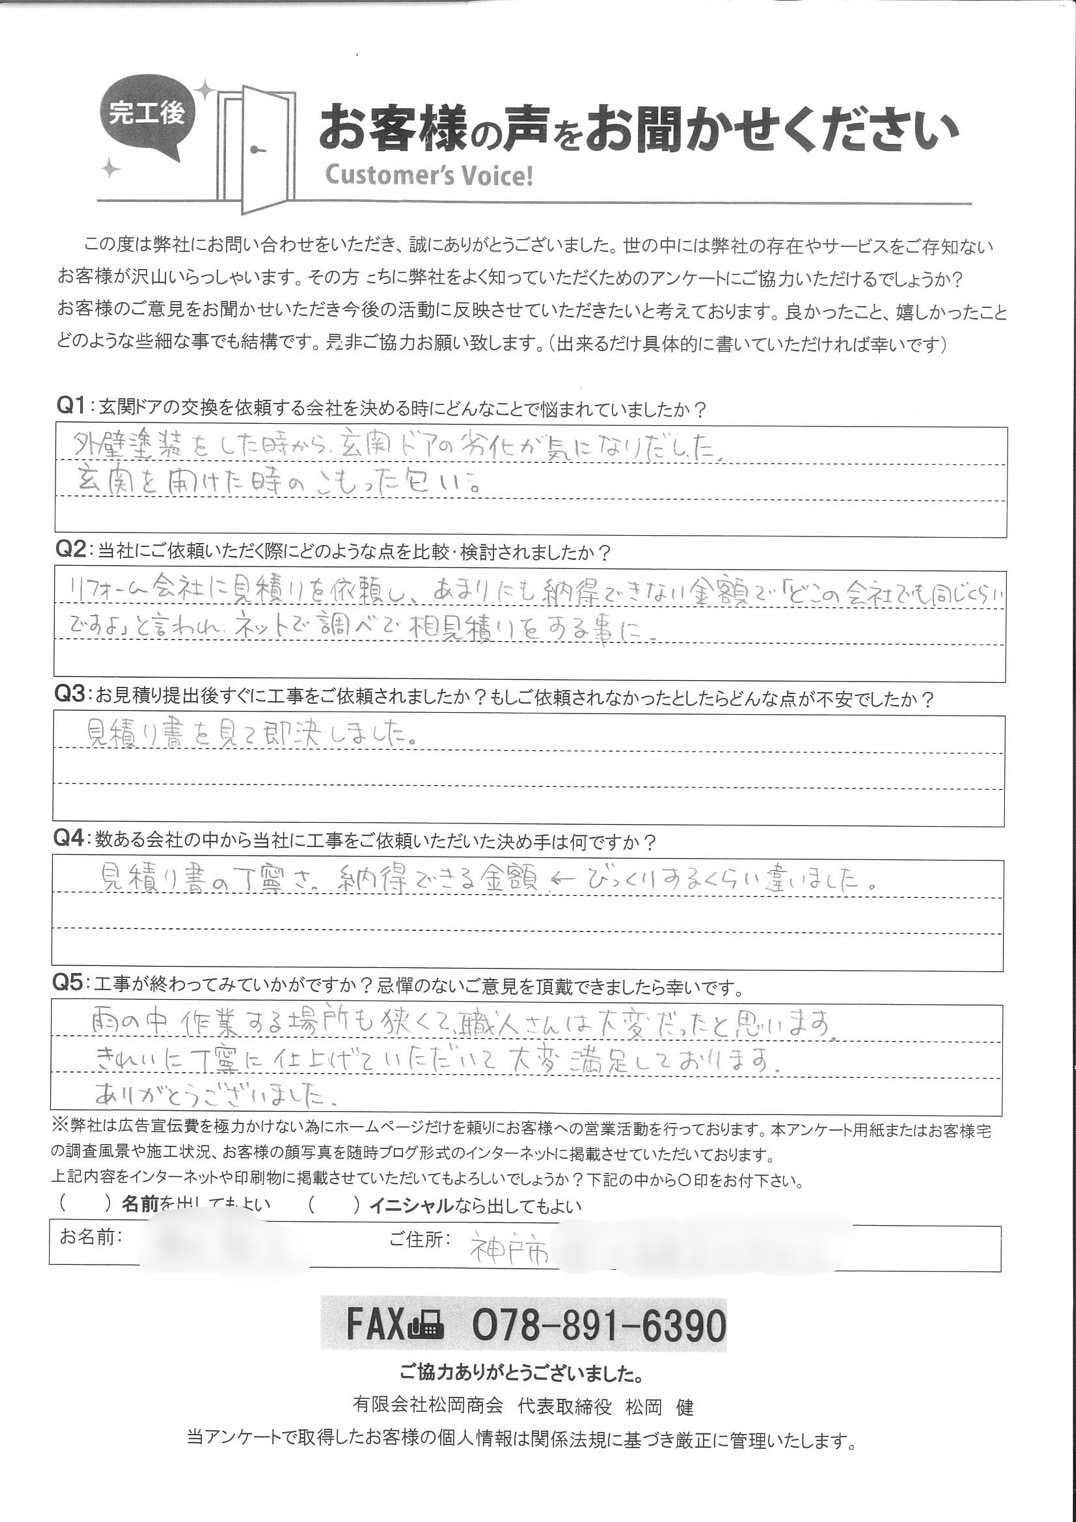 完工後
お客様の声をお聞かせください
Customer's Voice!
この度は弊社にお問い合わせをいただき、誠にありがとうございました。世の中には弊社の存在やサービスをご存知ない
お客様が沢山いらっしゃいます。その方たちに弊社をよく知っていただくためのアンケートにご協力いただけるでしょうか?
お客様のご意見をお聞かせいただき今後の活動に反映させていただきたいと考えております。良かったこと、嬉しかったこと
どのような些細な事でも結構です。是非ご協力お願い致します。(出来るだけ具体的に書いていただければ幸いです)
Q1:玄関ドアの交換を依頼する会社を決める時にどんなことで悩まれていましたか?
外壁塗装をした時から、玄関ドアの劣化が気になりだした。
玄関を開けた時のこもった匂い。
Q2:当社にご依頼いただく際にどのような点を比較・検討されましたか?
リフォーム会社に見積りを依頼し、あまりにも納得できない金額で「どこの会社でも同じくらい
ですよ」と言われ、ネットで調べて相見積りをする事に。
Q3:お見積り提出後すぐに工事をご依頼されましたか?もしご依頼されなかったとしたらどんな点が不安でしたか?
見積り書を見て即決しました。
Q4:数ある会社の中から当社に工事をご依頼いただいた決め手は何ですか?
見積り書の丁寧さ。納得できる金額 ← びっくりするくらい違いました。
Q5:工事が終わってみていかがですか?忌憚のないご意見を頂戴できましたら幸いです。
雨の中、作業する場所も狭くて、職人さんは大変だったと思います。
きれいに丁寧に仕上げていただいて大変満足しております。
ありがとうございました。
※弊社は広告宣伝費を極力かけない為にホームページだけを頼りにお客様への営業活動を行っております。本アンケート用紙またはお客様宅
の調査風景や施工状況、お客様の顔写真を随時ブログ形式のインターネットに掲載させていただいております。
上記内容をインターネットや印刷物に掲載させていただいてもよろしいでしょうか?下記の中から〇印をお付下さい。
( )名前を出してもよい ( )イニシャルなら出してもよい
お名前: ご住所: 神戸市
FAX 078-891-6390
ご協力ありがとうございました。
有限会社松岡商会 代表取締役 松岡 健
当アンケートで取得したお客様の個人情報は関係法規に基づき厳正に管理いたします。